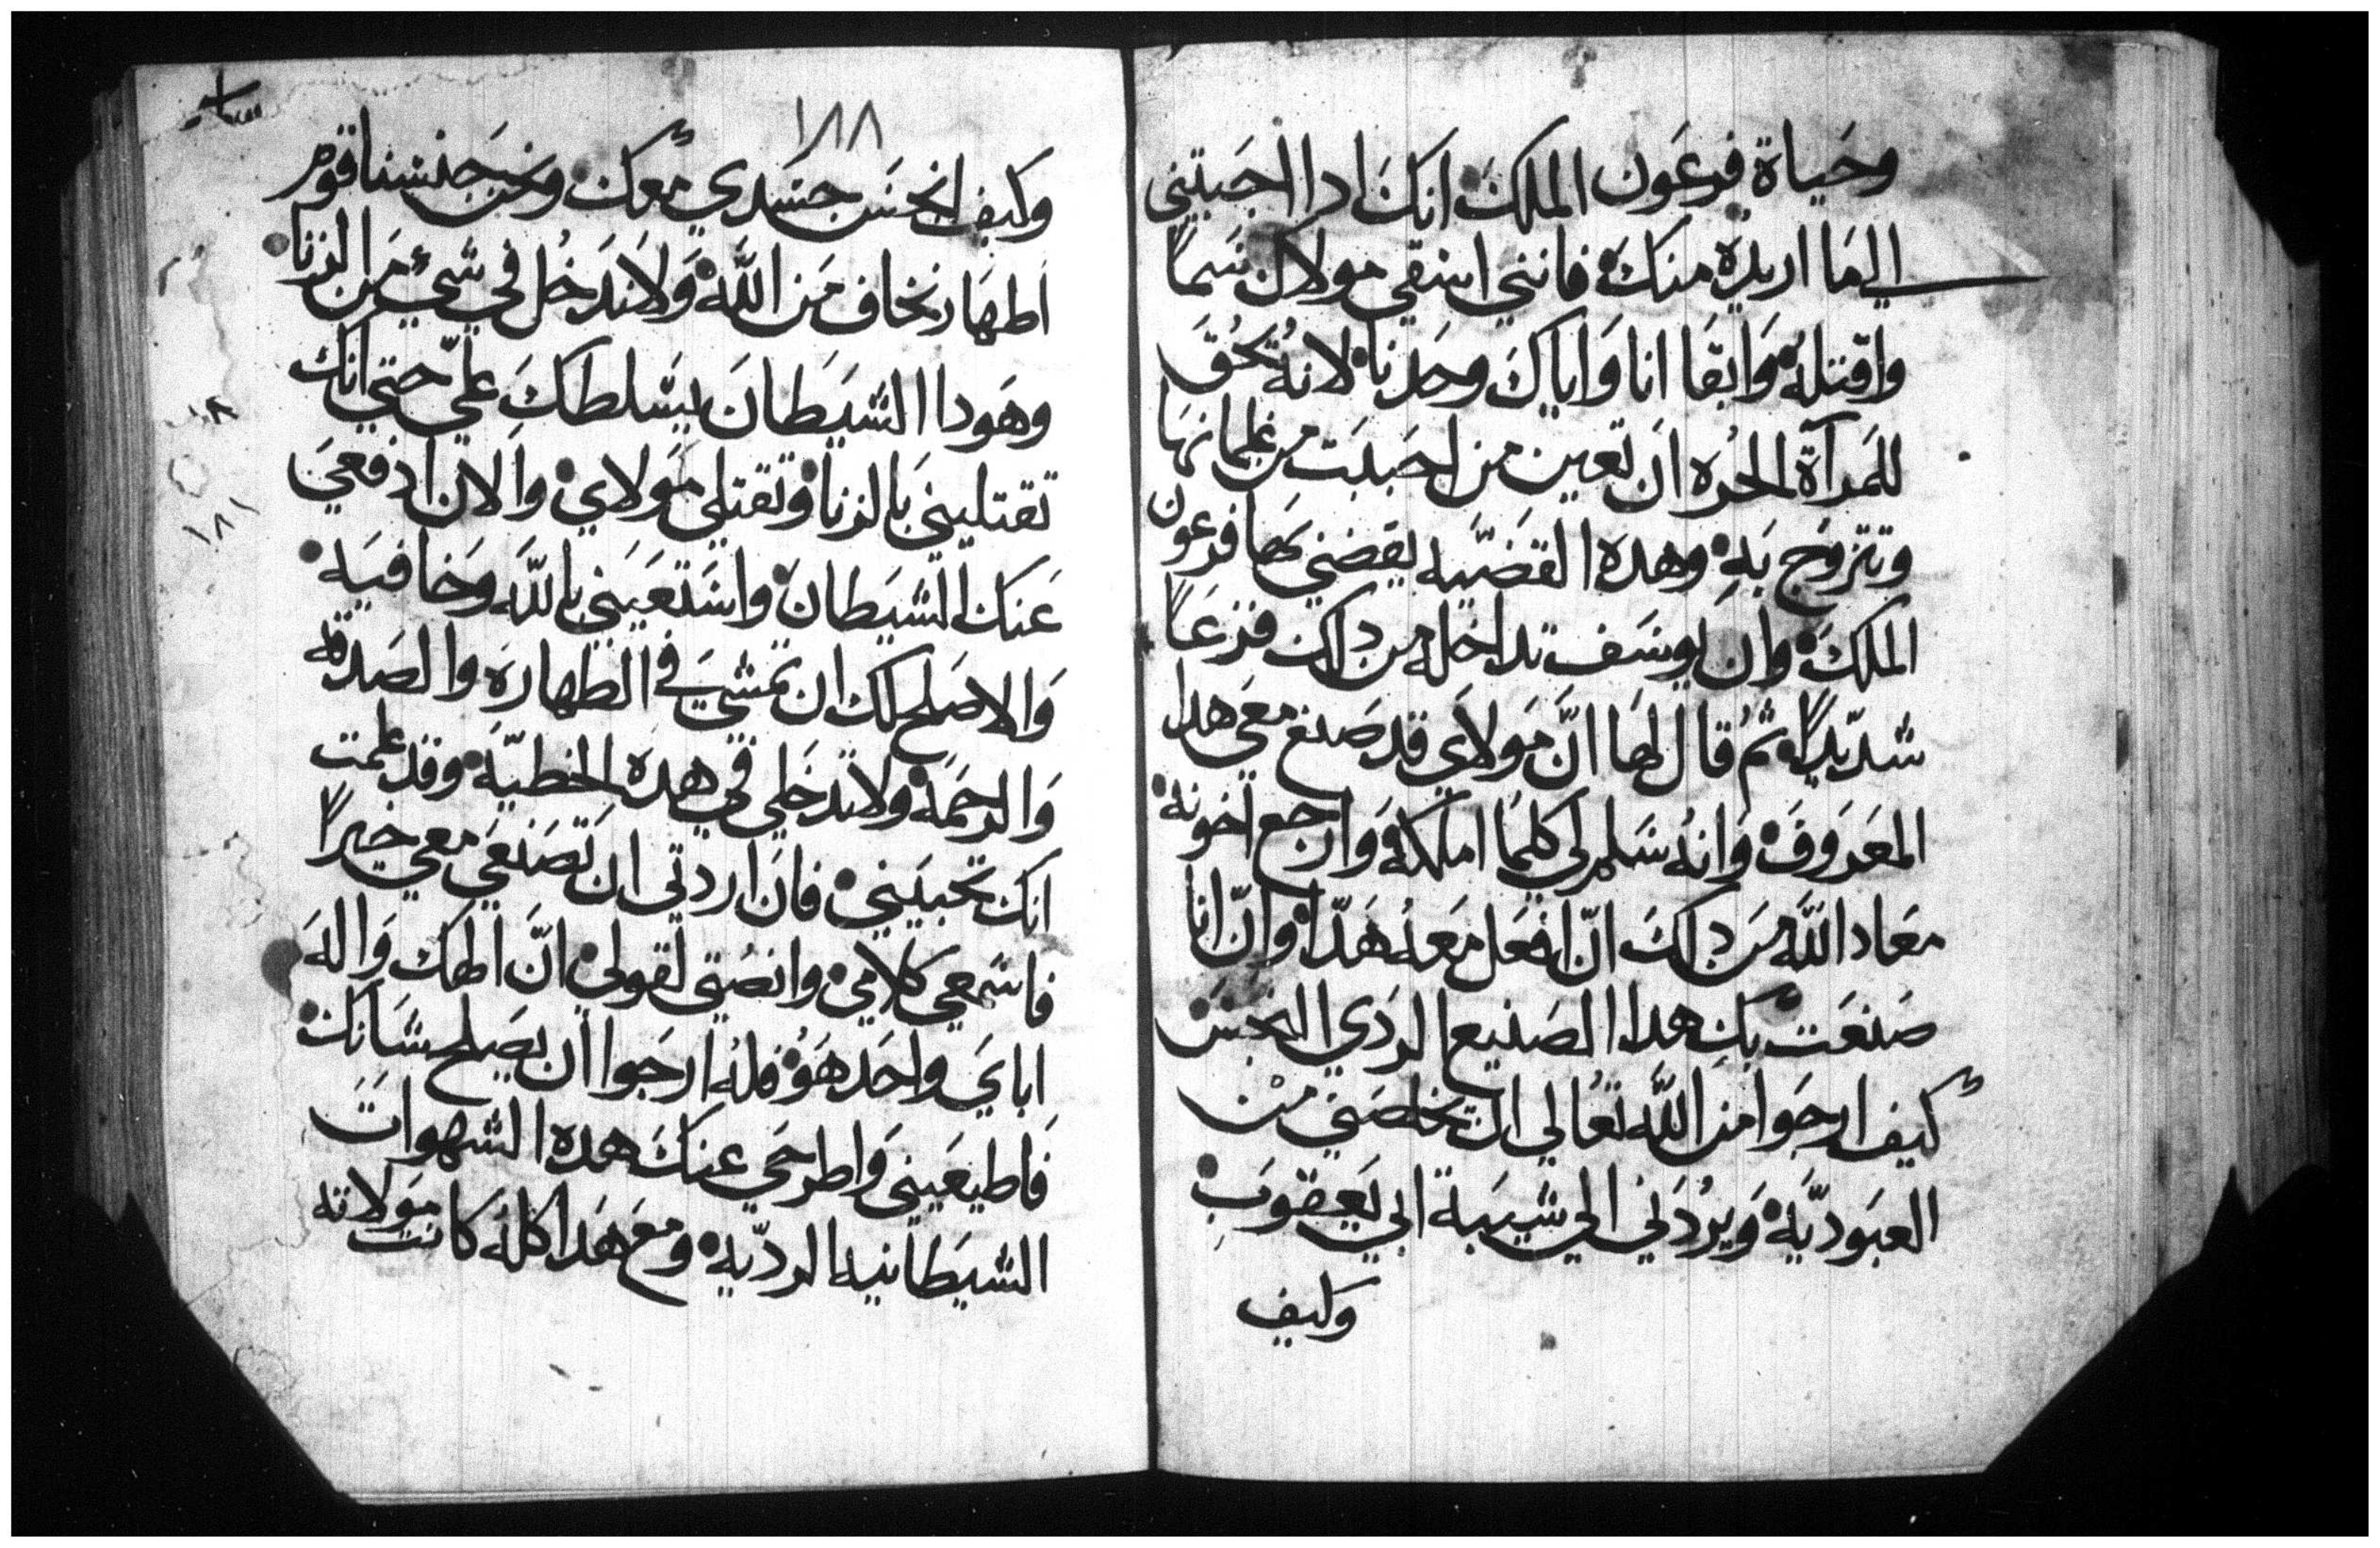 وحياة فرعون الملك انك ادا اجبتني
الي ما اريده منك فانني اسقي مولاك سما
واقتله وابقا انا واياك وحدنا لانه يحق
للمرآة الحره ان تعين من احببت من غلمانها
وتتزوج به وهده القضيه يقضي بها فرعون
الملك وان يوسف تداخله من داك فزعاً
شديداً ثم قال لها انّ مولاي قد صنع معي هدا
المعروف وانه سلم لي كلما املكه وارجع اخونه
معاد الله من داك انّ افعل معه هدا وانّ انا
صنعت بك هدا الصنيع الردي النجس
كيف ارجوا من الله تعالي ان يخلصني من
العبوديّه ويردني الي شيبة ابي يعقوب
وكيف
١٨٨
وكيف انجس جسدي معك ونحن جنسنا قوم
اطهار نخاف من الله ولا ندخل في شي من الزنا
وهودا الشيطان يسلطك عليّ حتي انك
تقتليني بالزنا وتقتلي مولاي والان ادفعي
عنك الشيطان واستعيني بالله وخافيه
والاصلح لك ان تمشي في الطهاره والصدقه
والرحمه ولا تدخلي في هده الخطيّه وقد علمت
انك تحبيني فان اردتي ان تصنعي معي خيراً
فاسمعي كلامي وانصتي لقولي انّ الهك واله
اباي واحد هو فله ارجوا ان يصلح شانك
فاطيعيني واطرحي عنك هده الشهوات
الشيطانيه الرديّه ومع هدا كله كانت مولاته